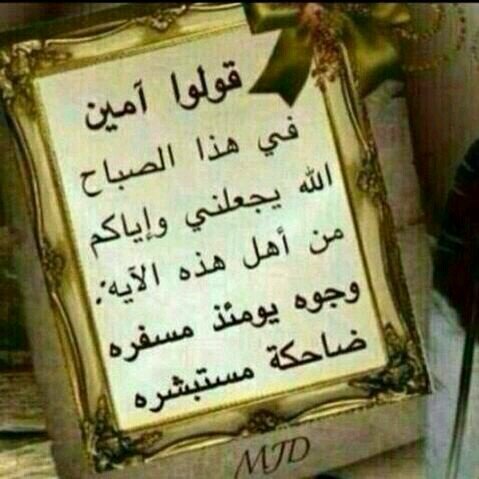 قولوا آمين
في هذا الصباح
الله يجعلني وإياكم
من أهل هذه الآيه:
وجوه يومئذ مسفره
ضاحكة مستبشره
MJD